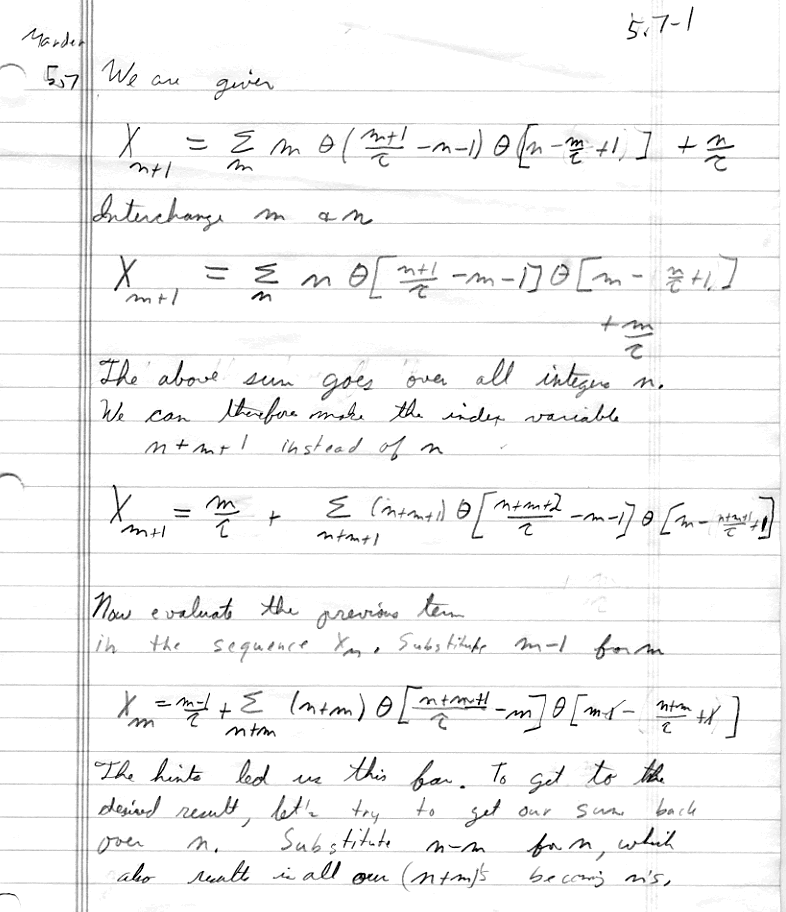 5.7-1
Marder
5.7 We are given
X_{n+1} = Σ_m m θ(\frac{m+1}{τ} - n - 1) θ[n - \frac{m}{τ} + 1] + \frac{n}{τ}
Interchange m & n
X_{m+1} = Σ_n n θ[\frac{n+1}{τ} - m - 1] θ[m - \frac{n}{τ} + 1]
+ \frac{m}{τ}
The above sum goes over all integers n.
We can therefore make the index variable
n+m+1 instead of n
X_{m+1} = \frac{m}{τ} + Σ_{n+m+1} (n+m+1) θ[\frac{n+m+2}{τ} - m - 1] θ[m - \frac{n+m+1}{τ} + 1]
Now evaluate the previous term
in the sequence X_m. Substitute m-1 for m
X_m = \frac{m-1}{τ} + Σ_{n+m} (n+m) θ[\frac{n+m+1}{τ} - m] θ[m-1 - \frac{n+m}{τ} + 1]
The hints led us this far. To get to the
desired result, let's try to get our sum back
over n. Substitute n-m for n, which
also results in all our (n+m)'s becoming n's.